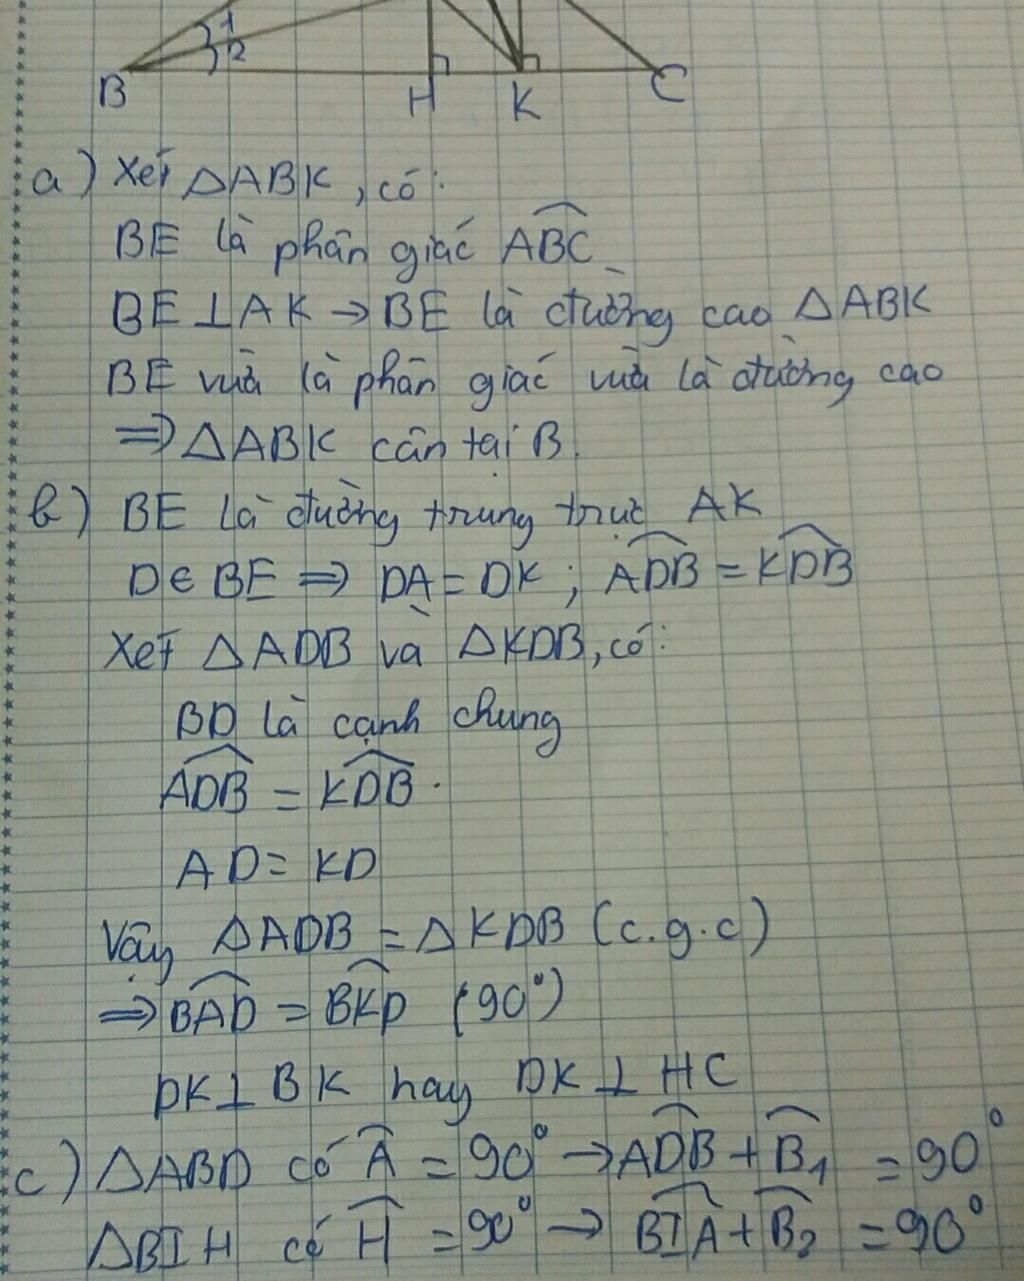 1
2
B H K C
a) Xét △ABK, có:
BE là phân giác ABC
BE ⊥ AK → BE là đường cao △ABK
BE vừa là phân giác vừa là đường cao
⇒ △ABK cân tại B.
b) BE là đường trung trực AK
D ∈ BE ⇒ DA = DK ; ADB = KDB
Xét △ADB và △KDB, có:
BD là cạnh chung
ADB = KDB.
AD = KD
Vậy △ADB = △KDB (c.g.c)
⇒ BAD = BKD (90°)
DK ⊥ BK hay DK ⊥ HC
c) △ABD có A = 90° → ADB + B1 = 90°
△BIH có H = 90° → BIA + B2 = 90°